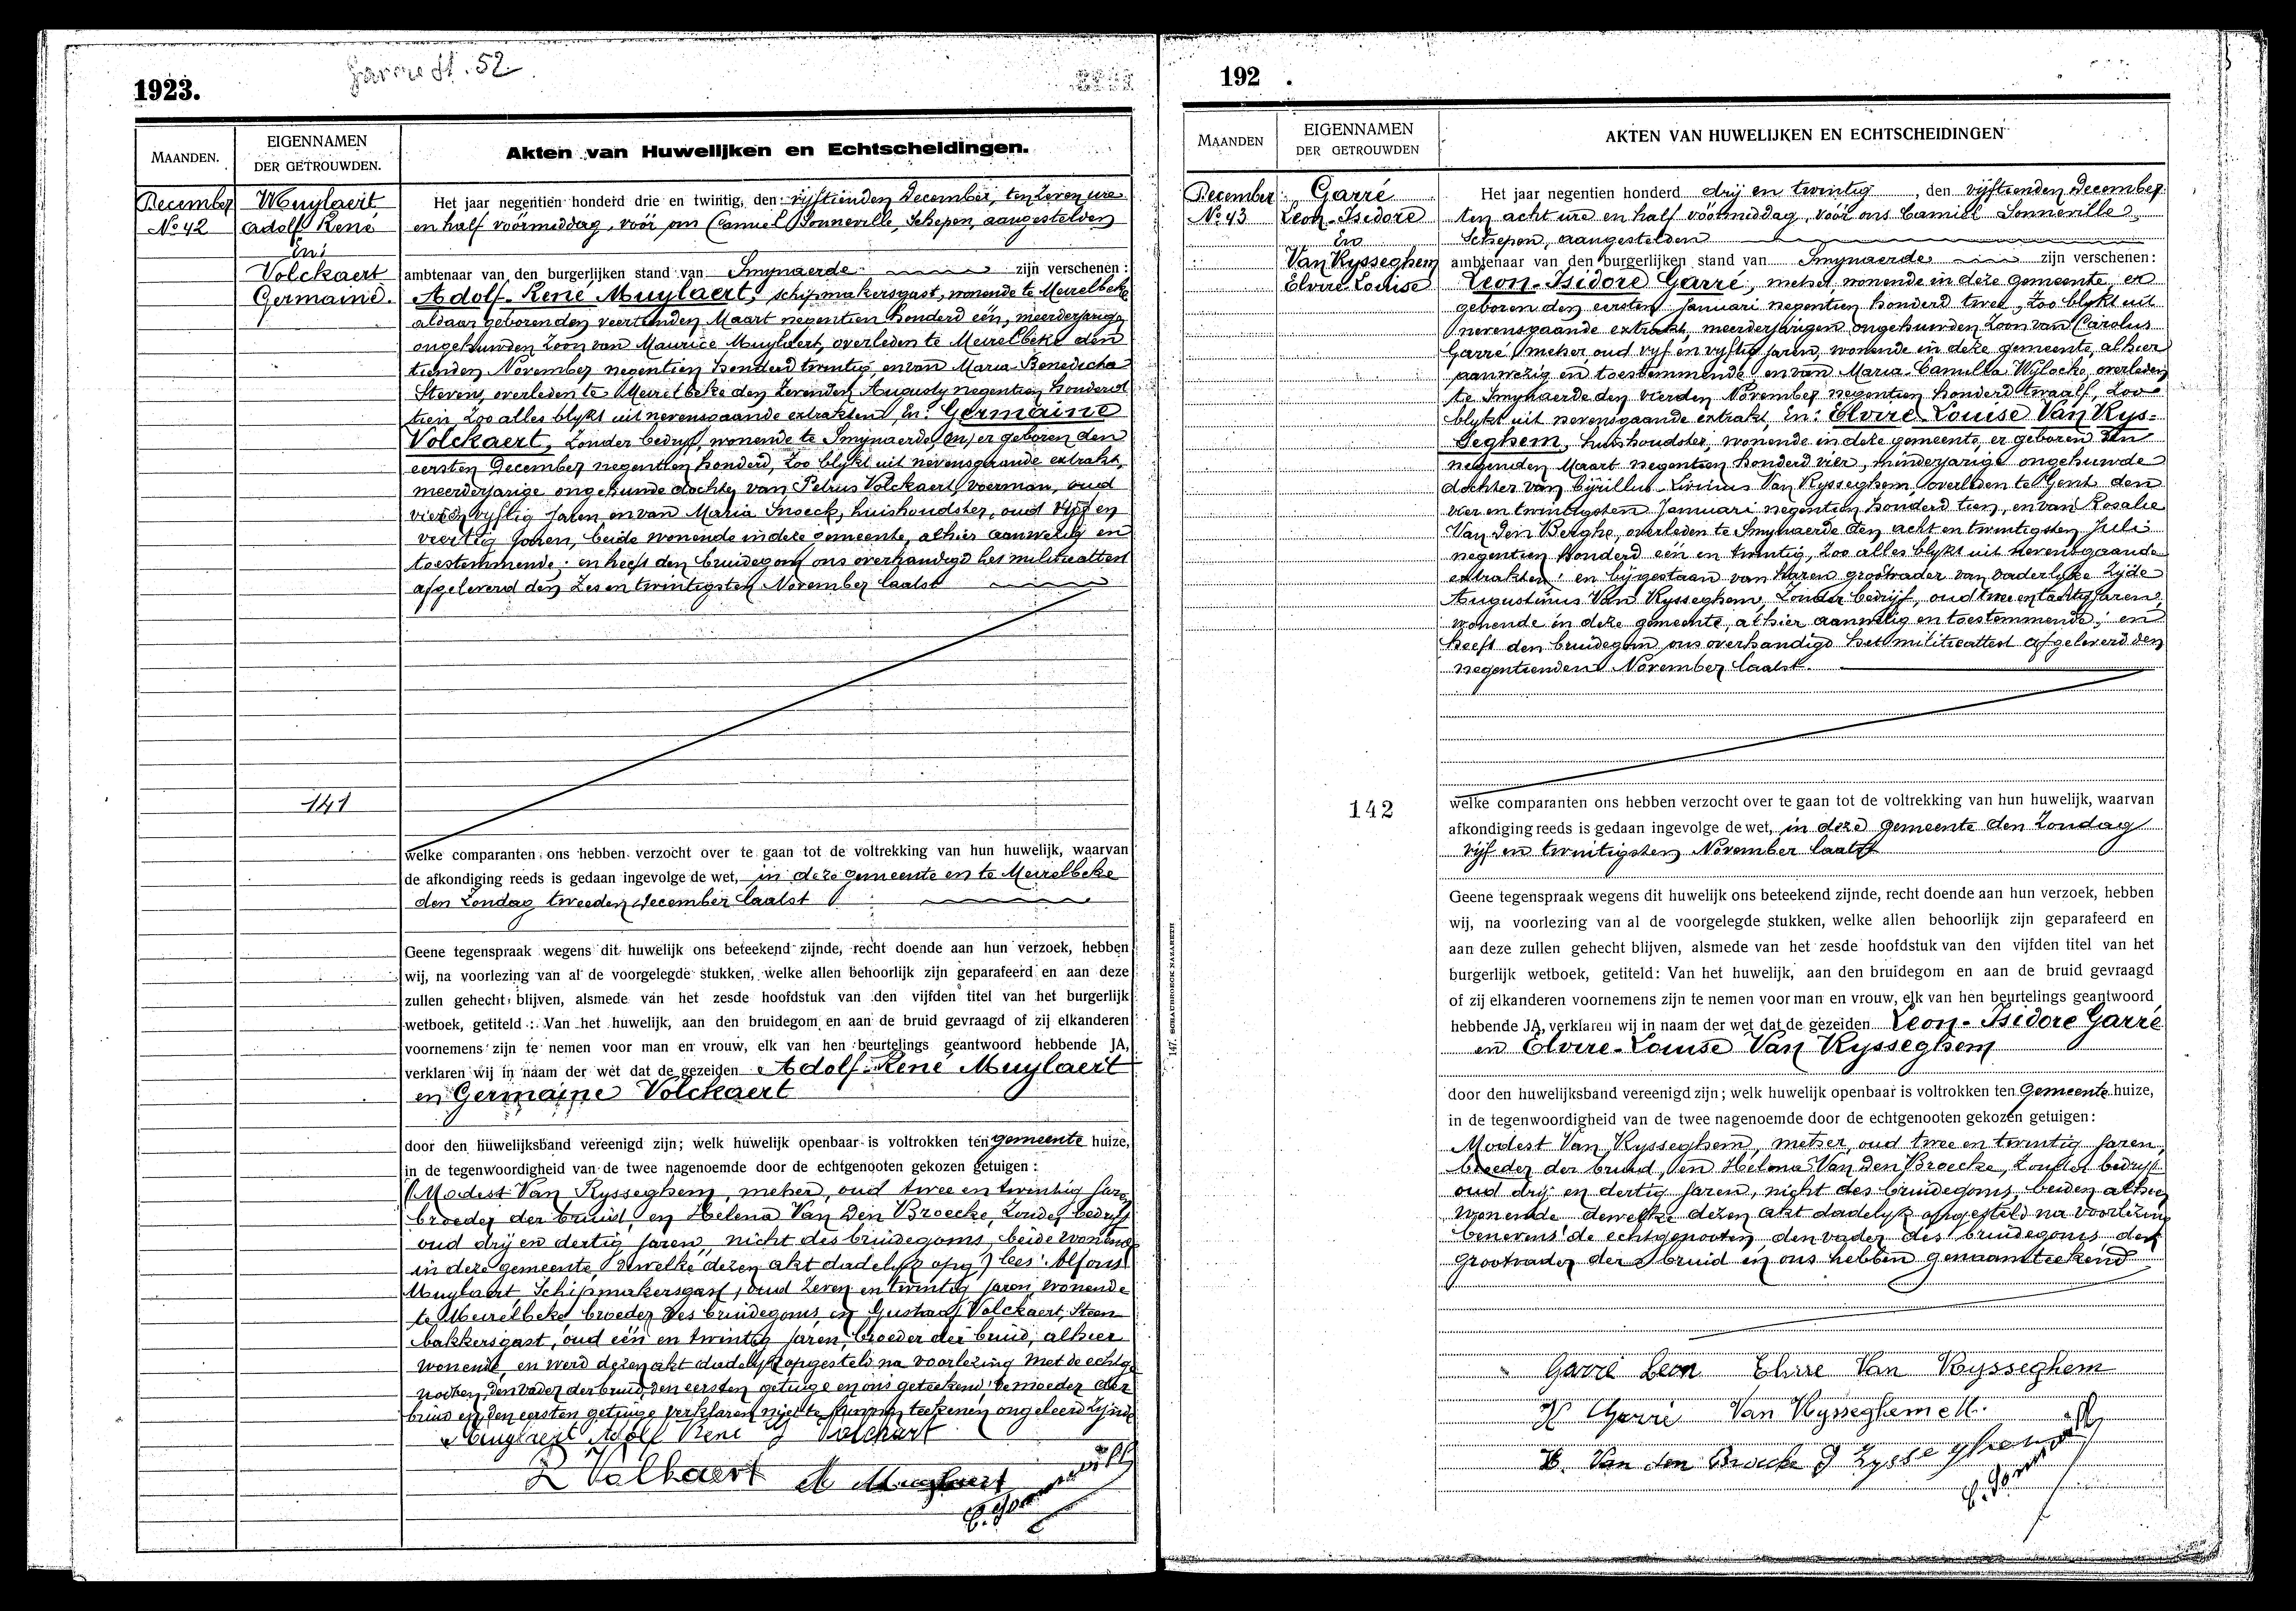 1923.
MAANDEN.
EIGENNAMEN
DER GETROUWDEN.
Akten van Huwelijken en Echtscheidingen.
December
No 42
Muylaert
Adolf René
En
Volckaert
Germaine.
141
Het jaar negentien honderd drie en twintig, den vijftienden December, ten zeven ure
en half vóórmiddag, vóór ons Camiel Sonneville, Schepen, aangestelden
ambtenaar van den burgerlijken stand van Smynaerde zijn verschenen :
Adolf-René Muylaert, schipmakersgast, wonende te Meirelbeke
aldaar geboren den veertienden Maart negentien honderd een, meerderjarige
ongehuwden zoon van Maurice Muylaert, overleden te Meirelbeke den
tienden November negentien honderd twintig, en van Maria-Benedicta
Stevens, overleden te Meirelbeke den zevenden Augusty negentien honderd
tien, zoo alles blykt uit nevensgaande extrakten, En: Germaine
Volckaert, zonder bedryf, wonende te Smynaerde, en er geboren den
eersten December negentien honderd, zoo blykt uit nevensgaande extrakt,
meerderjarige ongehuwde dochter van Petrus Volckaert, voerman, oud
vier en vyftig jaren, en van Maria Snoeck, huishoudster, oud vijf en
veertig jaren, beide wonende in deze gemeente, alhier aanwezig en
toestemmende; en heeft den bruidegom ons overhandigd het militieattest
afgeleverd den zes en twintigsten November laatst
welke comparanten ons hebben verzocht over te gaan tot de voltrekking van hun huwelijk, waarvan
de afkondiging reeds is gedaan ingevolge de wet, in deze gemeente en te Meirelbeke
den Zondag tweeden December laatst
Geene tegenspraak wegens dit huwelijk ons beteekend zijnde, recht doende aan hun verzoek, hebben
wij, na voorlezing van al de voorgelegde stukken, welke allen behoorlijk zijn geparafeerd en aan deze
zullen gehecht blijven, alsmede van het zesde hoofdstuk van den vijfden titel van het burgerlijk
wetboek, getiteld : Van het huwelijk, aan den bruidegom en aan de bruid gevraagd of zij elkanderen
voornemens zijn te nemen voor man en vrouw, elk van hen beurtelings geantwoord hebbende JA,
verklaren wij in naam der wet dat de gezeiden Adolf-René Muylaert
en Germaine Volckaert
door den huwelijksband vereenigd zijn; welk huwelijk openbaar is voltrokken ten gemeente huize,
in de tegenwoordigheid van de twee nagenoemde door de echtgenooten gekozen getuigen :
(Modest Van Rysseghem, metser, oud twee en twintig jaren
broeder der bruid, en Helena Van Den Broecke, zonder bedryf
oud drij en dertig jaren, nicht des bruidegoms, beide wonende
in deze gemeente, dewelke dezen akt dadelyk opg) lees: Alfons
Muylaert, Schipmakersgast, oud zeven en twintig jaren, wonende
te Meirelbeke, broeder des bruidegoms, en Gustaaf Volckaert, Steen
bakkersgast, oud een en twintig jaren, broeder der bruid, alhier
wonende, en werd dezen akt dadelyk opgesteld na voorlezing met de echtge
nooten, den vader der bruid, den eersten getuige en ons geteekend; de moeder der
bruid en den eersten getuige verklaren niet te kunnen teekenen ongeleerd zijnde
Muylaert Adolf René G Volckaert
Volkaert A Muylaert
192 .
MAANDEN
EIGENNAMEN
DER GETROUWDEN
AKTEN VAN HUWELIJKEN EN ECHTSCHEIDINGEN
December
No 43
Garré
Leon-Isedore
En
Van Rysseghem
Elvire Louise
142
147. SCHAUBROECK NAZARETH
Het jaar negentien honderd drij en twintig, den vijftienden December
ten acht ure en half vóórmiddag, vóór ons Camiel Sonneville
Schepen, aangestelden
ambtenaar van den burgerlijken stand van Smynaerde zijn verschenen:
Leon-Isidore Garré, metser, wonende in deze gemeente, er
geboren den eersten Januari negentien honderd twee, zoo blykt uit
nevensgaande extrakt, meerderjarigen ongehuwden zoon van Carolus
Garré, metser, oud vyf en vyftig jaren, wonende in deze gemeente, alhier
aanwezig en toestemmende en van Maria-Camilla Wylocke, overleden
te Smynaerde den vierden November negentien honderd twaalf, zoo
blykt uit nevensgaande extrakt, En: Elvire-Louise Van Rys=
seghem, huishoudster, wonende in deze gemeente, er geboren den
negenden Maart negentien honderd vier, minderjarige ongehuwde
dochter van Cyrillus-Livinus Van Rysseghem, overleden te Gent den
vier en twintigsten Januari negentien honderd tien, en van Rosalie
Van Den Berghe, overleden te Smynaerde den acht en twintigsten Juli
negentien honderd één en twintig, zoo alles blykt uit nevensgaande
extrakten; en bijgestaan van haren grootvader van vaderlyke zijde
Augustinus Van Rysseghem, zonder bedrijf, oud twee en tachtig jaren,
wonende in deze gemeente, alhier aanwezig en toestemmende; en
heeft den bruidegom ons overhandigd het militieattest afgeleverd den
negentienden November laatst.
welke comparanten ons hebben verzocht over te gaan tot de voltrekking van hun huwelijk, waarvan
afkondiging reeds is gedaan ingevolge de wet, in deze gemeente den Zondag
vijf en twintigsten November laatst
Geene tegenspraak wegens dit huwelijk ons beteekend zijnde, recht doende aan hun verzoek, hebben
wij, na voorlezing van al de voorgelegde stukken, welke allen behoorlijk zijn geparafeerd en
aan deze zullen gehecht blijven, alsmede van het zesde hoofdstuk van den vijfden titel van het
burgerlijk wetboek, getiteld: Van het huwelijk, aan den bruidegom en aan de bruid gevraagd
of zij elkanderen voornemens zijn te nemen voor man en vrouw, elk van hen beurtelings geantwoord
hebbende JA, verklaren wij in naam der wet dat de gezeiden Leon-Isidore Garré
en Elvire-Louise Van Rysseghem
door den huwelijksband vereenigd zijn; welk huwelijk openbaar is voltrokken ten Gemeente huize,
in de tegenwoordigheid van de twee nagenoemde door de echtgenooten gekozen getuigen:
Modest Van Rysseghem, metser, oud twee en twintig jaren,
broeder der bruid, en Helena Van Den Broecke, zonder bedryf
oud drij en dertig jaren, nicht des bruidegoms, beiden alhier
wonende dewelke dezen akt dadelyk opgesteld na voorlezing
benevens de echtgenooten, den vader des bruidegoms, den
grootvader der bruid en ons hebben genaamteekend
Garré Leon Elvire Van Rysseghem
Garré Van Rysseghem M.
H. Van den Broecke